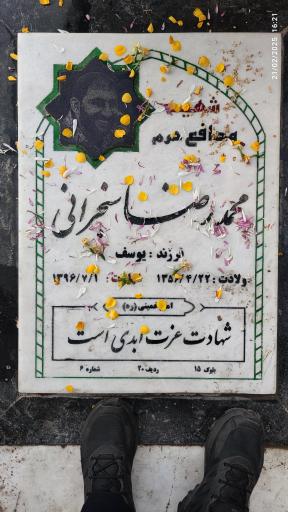 23/02/2025 16:21
شهید
مدافع حرم
محمدرضا سنجرانی
فرزند : یوسف
ولادت : ۱۳۵۶/۴/۲۲ شهادت : ۱۳۹۶/۷/۱
امام خمینی (ره)
شهادت عزت ابدی است
بلوک ۱۵ ردیف ۲۰ شماره ۶